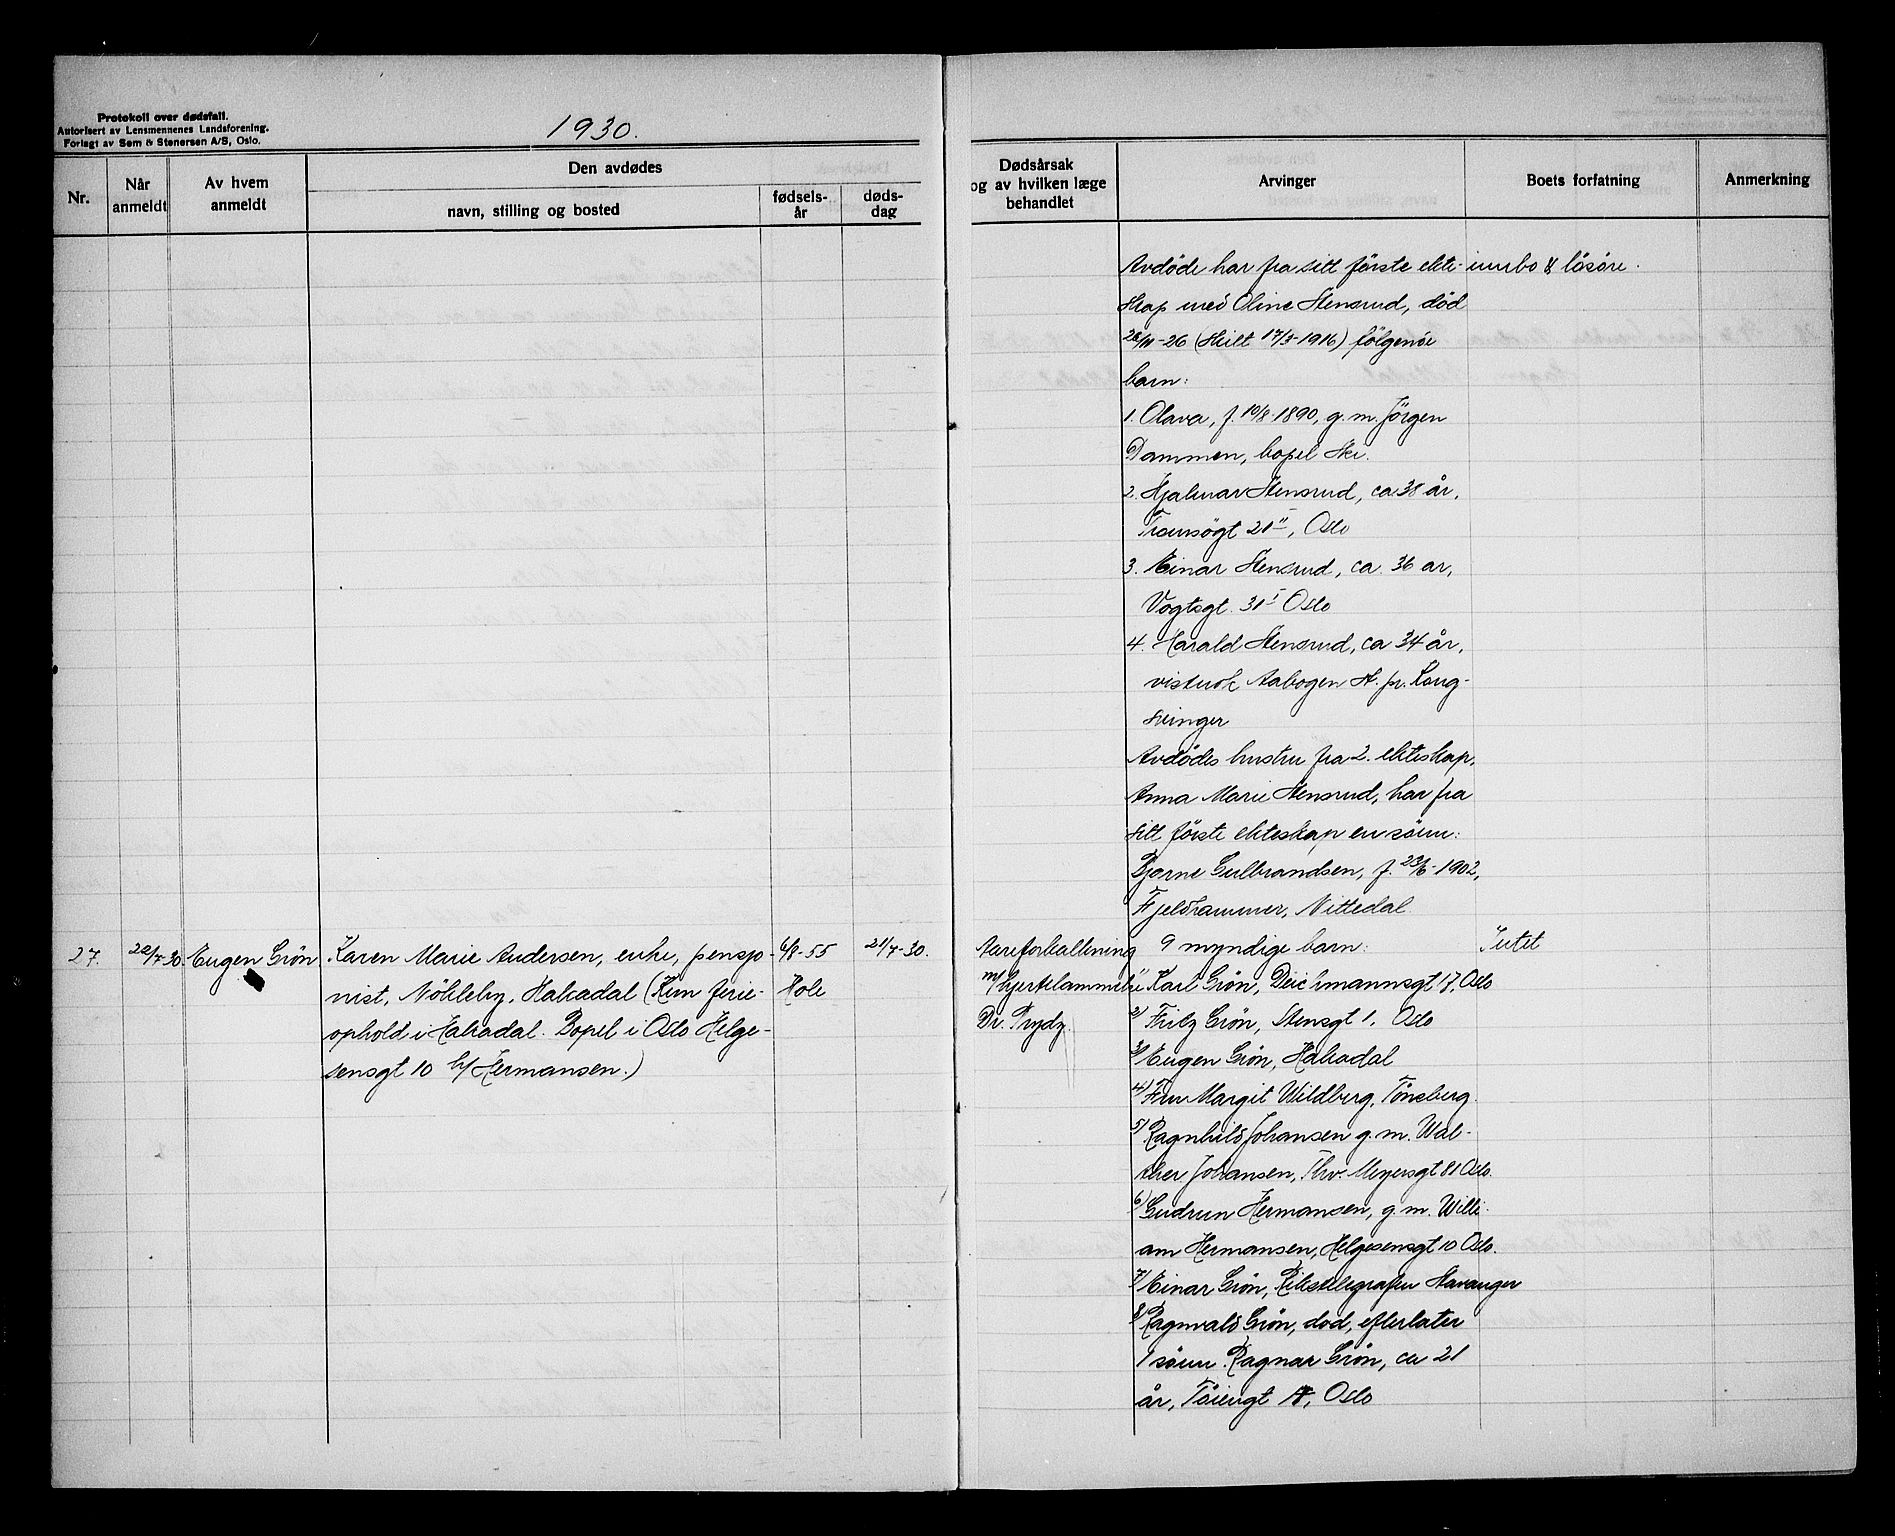 Protokoll over dødsfall.
Autorisert av Lensmennenes Landsforening.
Forlagt av Sem & Stenersen A/S, Oslo.
1930.
Nr.
Når anmeldt
Av hvem anmeldt
Den avdødes
navn, stilling og bosted
fødsels-år
døds-dag
Dødsårsak og av hvilken læge behandlet
Arvinger
Boets forfatning
Anmerkning
Avdöde har fra sitt förste ekte-
skap med Oline Stensrud, död
-26 (skilt 17/3-1916) fölgende
barn:
1. Olava, f. 10/8-1890, g.m. Jörgen
Dammen, bopel Ski.
2. Hjalmar Stensrud, ca 38 år,
Tromsögt 20 II, Oslo
3. Einar Stensrud, ca. 36 ar,
Vogtsgt. 30 I Oslo
4. Harald Stensrud, ca 34 år,
vistnok Aabogen st. pr. Kong-
svinger
Avdödes hustru fra 2. ekteskap,
Anna Marie Stensrud, har fra
sitt förste ekteskap en sönn:
Bjarne Gulbrandsen, f. 23/6-1902,
Fjeldhammer, Nittedal.
innbo & lösöre.
27.
22/7-30
Eugen Grön
Karen Marie Andersen, enke, pensjo-
nist, Nökleby, Hakadal (Kun ferie-
ophold i Hakadal. Bopel i Oslo Helge-
sensgt 10 b/ Hermansen.)
6/8-55
Hole
21/7-30.
Aareforkalkning
m/ hjertelammelse
Dr. Prydz.
9 myndige barn:
1) Karl Grön, Deichmannsgt 17, Oslo
2) Fritz Grön, Stensgt 1, Oslo
3) Eugen Grön, Hakadal
4) Fru Margit Wildberg, Tönsberg.
5) Ragnhild Johansen g.m. Wal-
ther Johansen, Thv. Meyersgt 81 Oslo.
6) Gudrun Hermansen, g.m. Willi-
am Hermansen, Helgesensgt 10 Oslo.
7) Einar Grön, Rikstelegrafen Stavanger
8) Ragnvald Grön, död, efterlater
1 sönn: Ragnar Grön, ca 21
år, Töiengt, Oslo
Intet